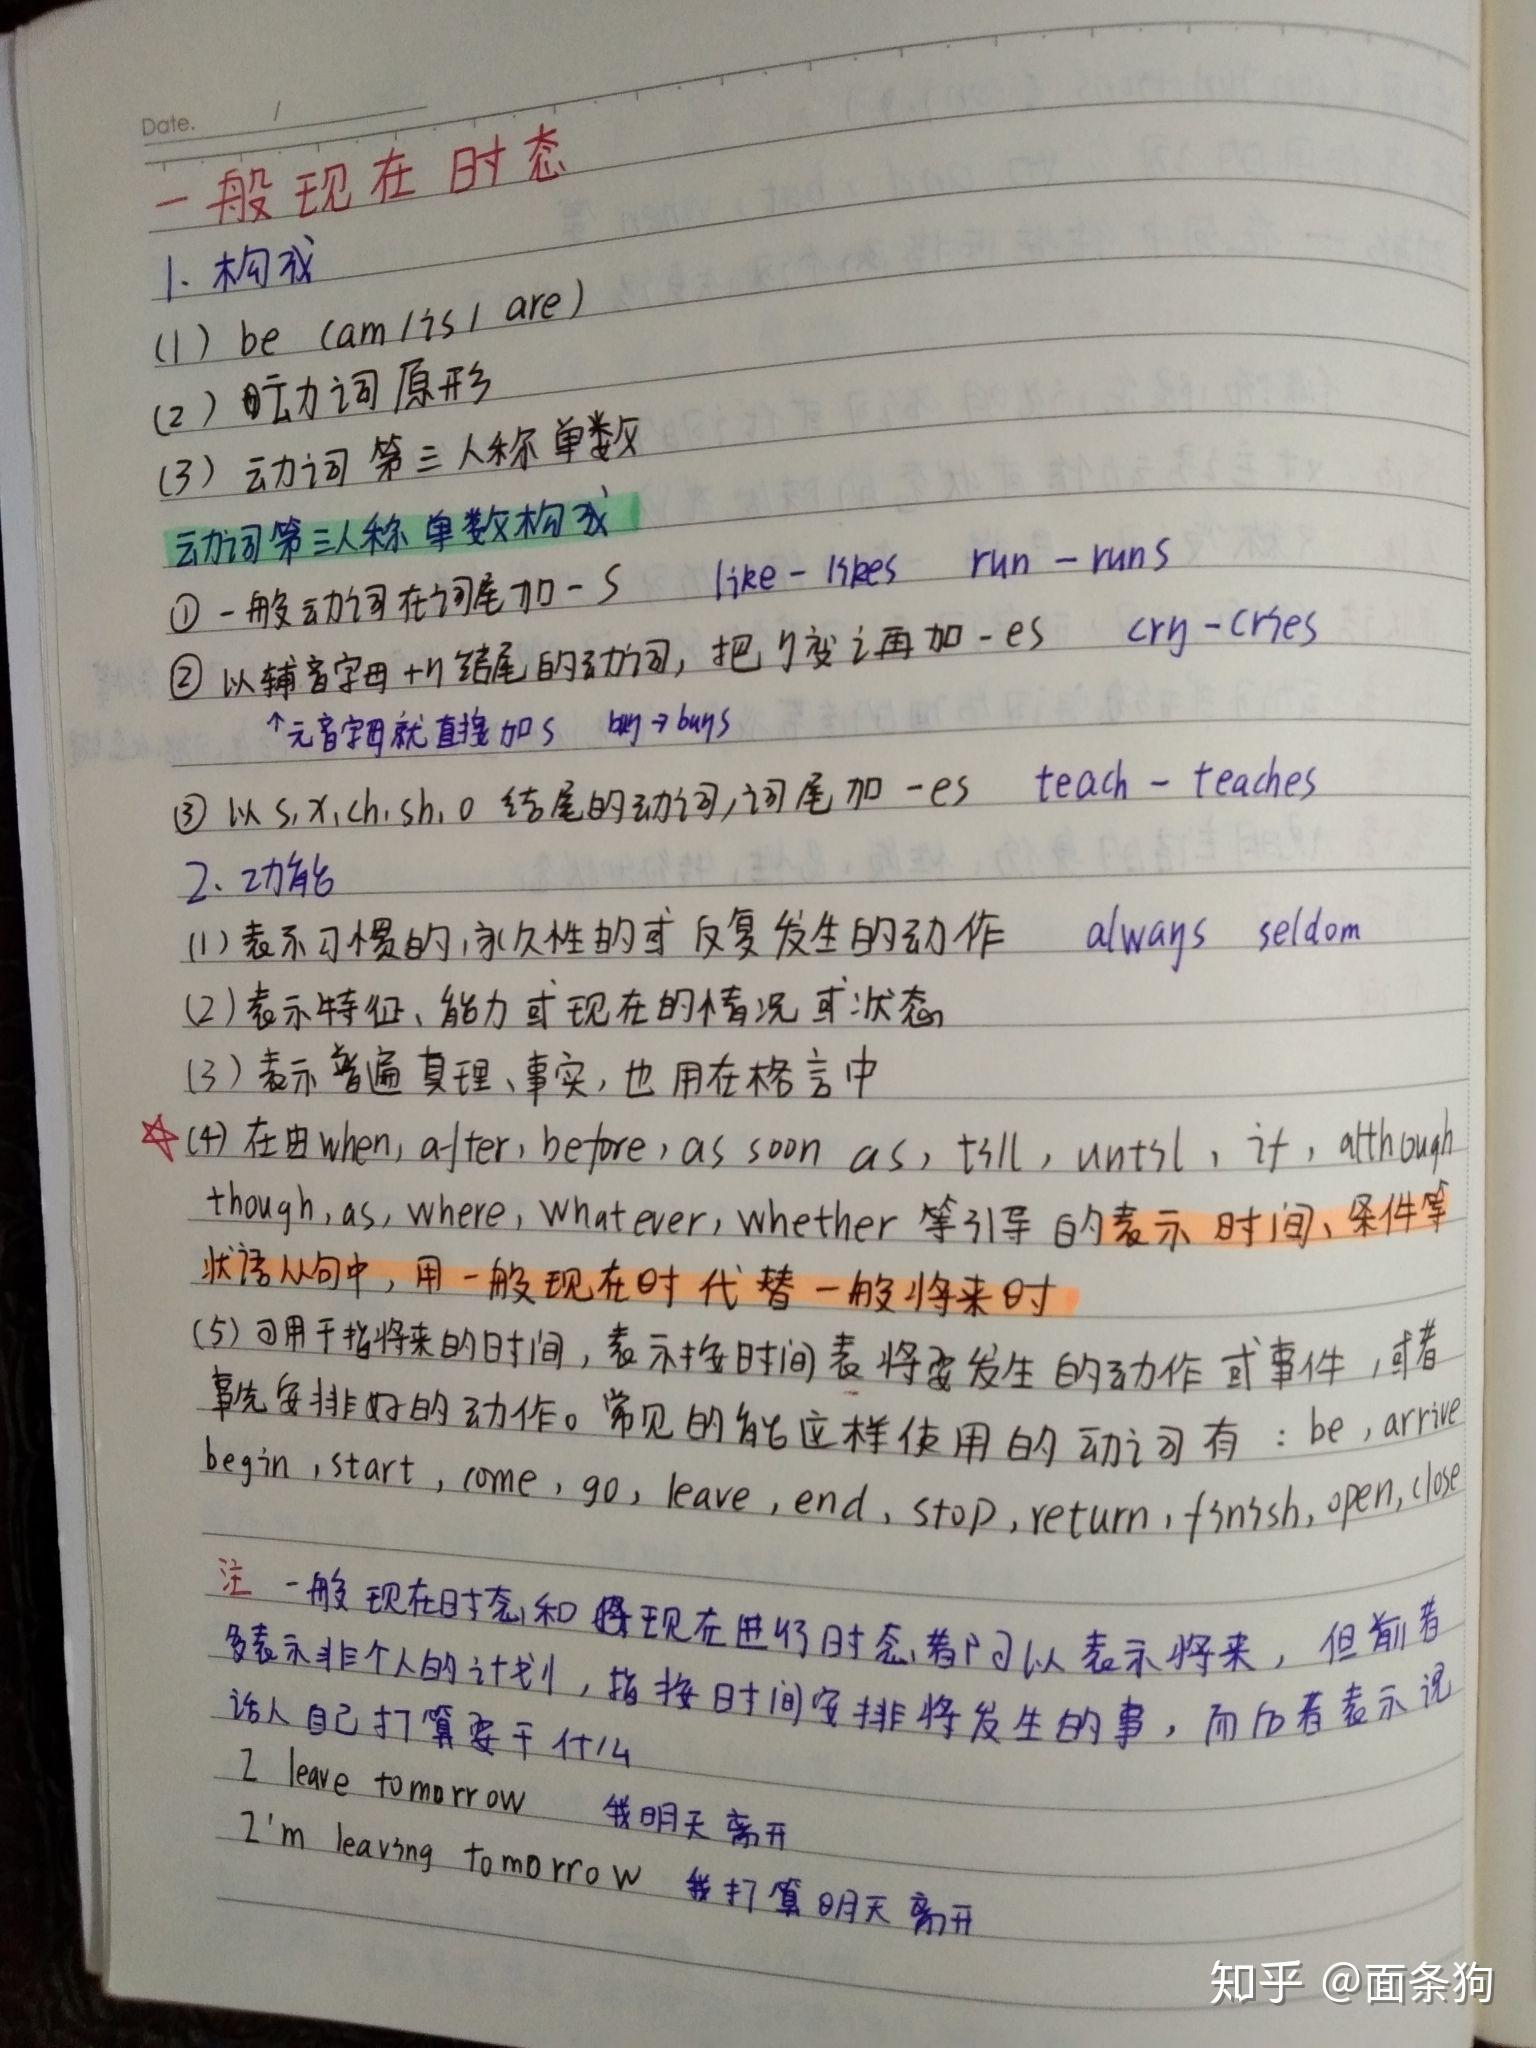 Date. /
一般现在时态
1. 构成
(1) be (am / is / are)
(2) 动词原形
(3) 动词第三人称单数
动词第三人称单数构成
① 一般动词在词尾加-s like - likes run - runs
② 以辅音字母+y结尾的动词, 把y变i再加-es cry - cries
↑元音字母就直接加s buy→buys
③ 以s, x, ch, sh, o 结尾的动词, 词尾加-es teach - teaches
2. 功能
(1) 表示习惯的, 永久性的或反复发生的动作 always seldom
(2) 表示特征、能力或现在的情况或状态
(3) 表示普遍真理、事实, 也用在格言中
☆(4) 在由when, after, before, as soon as, till, until, if, although
though, as, where, whatever, whether 等引导的表示时间、条件等
状语从句中, 用一般现在时代替一般将来时
(5) 可用于指将来的时间, 表示按时间表将要发生的动作或事件, 或者
事先安排好的动作。常见的能这样使用的动词有: be, arrive
begin, start, come, go, leave, end, stop, return, finish, open, close
注 一般现在时态和现在进行时态都可以表示将来, 但前者
多表示非个人的计划, 指按时间安排将发生的事, 而后者表示说
话人自己打算要干什么
I leave tomorrow 我明天离开
I'm leaving tomorrow 我打算明天离开
知乎 @面条狗